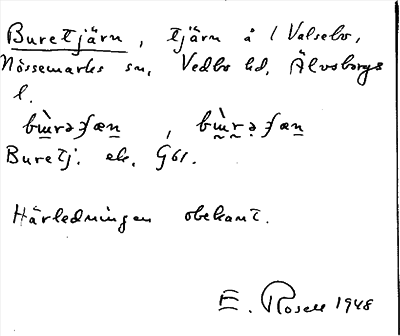 Buretjärn, tjärn å / Valsebo,
Nössemarks sn, Vedbo hd, Älvsborgs
l.
Buretj. ek. G61.
Härledningen obekant.
E. Rosell 1948